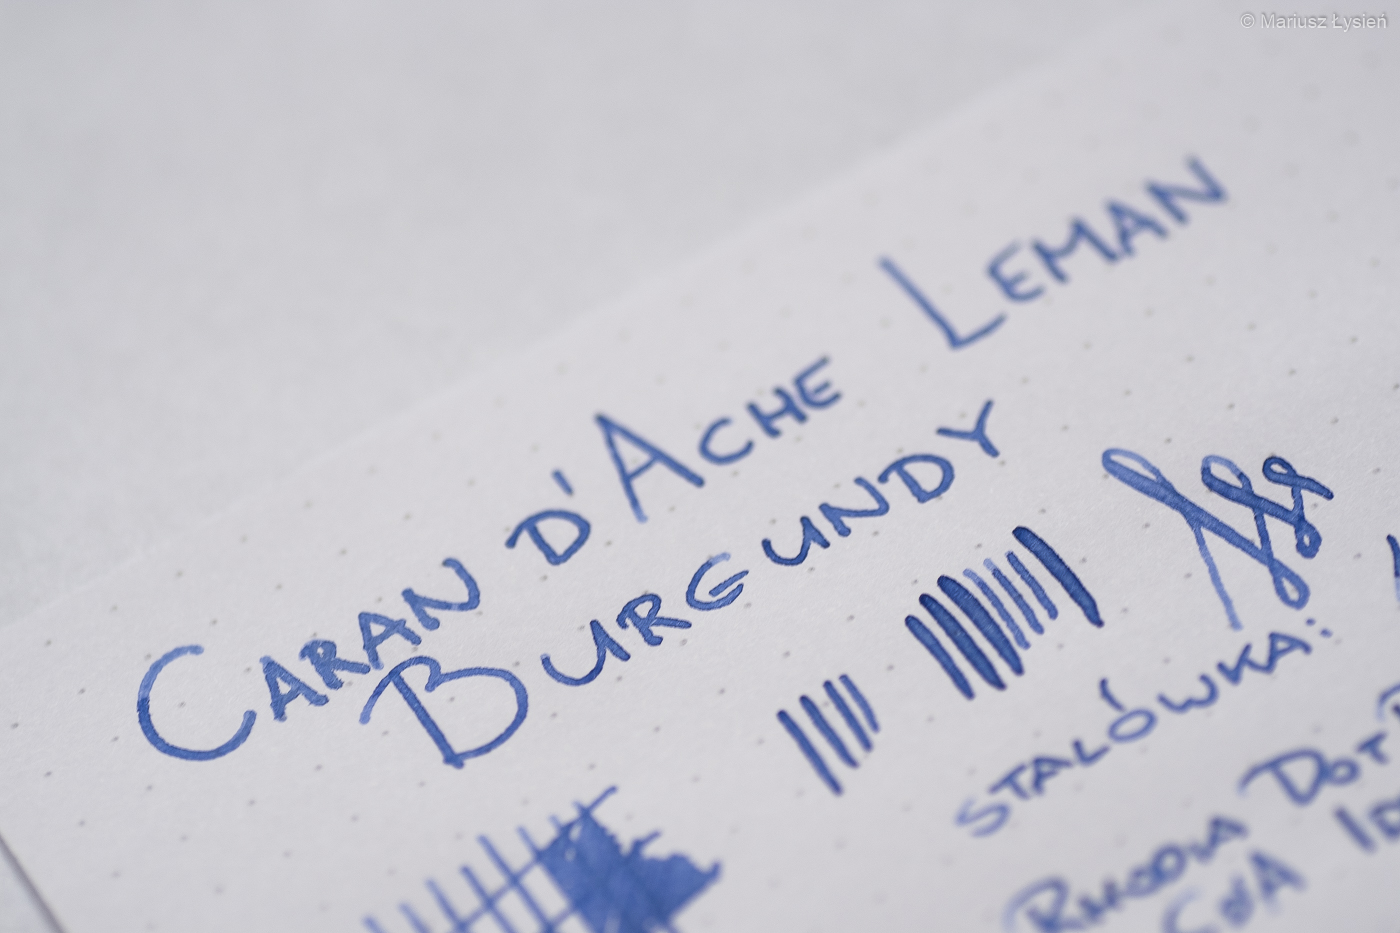 © Mariusz Łysień
CARAN D'ACHE LEMAN
BURGUNDY
STALÓWKA:
RHODIA DOT